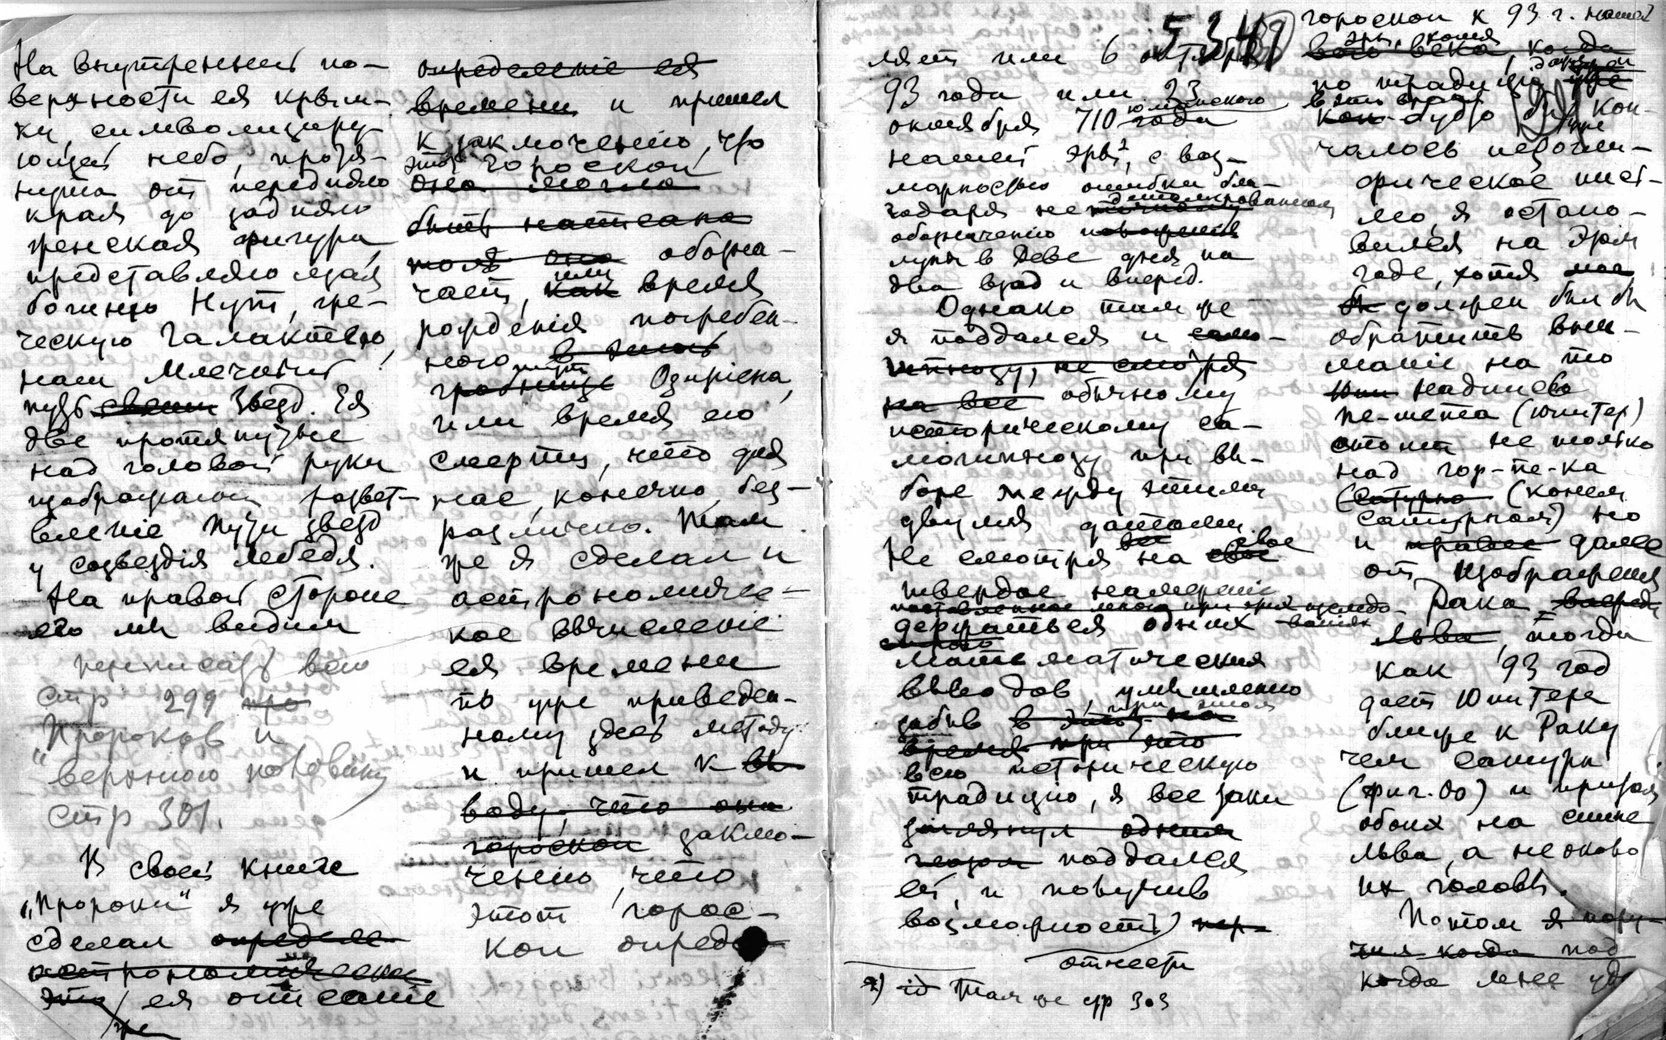 На внутренней по-
верхности ея крыш-
ки, символизиру-
ющей небо, протя-
нута от передняго
края до задняго
женская фигура,
представляющая
богиню Нут, гре-
ческую Галактею,
наш Млечный
путь звезд. Ея
две протянутые
над головой руки
изображают развет-
вление пути звезд
у созвездия Лебедя.
На правой стороне
его мы видим
переписать всю
стр 299
Пророков и
верхнюю половину
стр 301.
В своей книге
„Пророки“ я уже
сделал
ея описание
определение ея
времени и пришел
к заключению, что
этот гороскоп
она могла
быть написана
обозна-
чает, или как время
рождения погребен-
ного в этой
гробнице Озириена,
или время его
смерти, что для
нас, конечно, без-
различно. Там
же я сделал и
астрономичес-
кое вычисление
ея времени
по уже приведен-
ному здесь методу
и пришел к вы
воду, что она
гороскоп заклю-
чению, что
этот горос-
коп опред
5347
93 года или 23
октября 710 юлианского года
нашей эры², с воз-
можностью ошибки бла-
годаря не
обозначению
луны в Деве дня на
два взад и вперед.
Однако там же
я поддался и само-
гипнозу, не смотря
на все обычному
историческому са-
могипнозу при вы-
боре между этими
двумя датами.
Не смотря на все свое
твердое намерение
держаться одних
математических
выводов, умышленно
забыв при этом
время при это
всю историческую
традицию, я все таки
поддался
ей, и получив
возможность
отнести
²) Там же стр 303
гороскоп к 93 г. нашей
эры, когда
по традиции
будто бы кон-
чалось иероглифи-
фическое пись-
мо, я остано-
вился на этом
годе, хотя мне
бы должен был бы
обратить вни-
мание на то
надпись
пе-шета (юпитер)
стоит не только
над гор-пе-ка
(Сатурна) (конем
сатурном) но
и правее далее
от изображения
Рака, впереди
Льва, тогда
как 93 год
дает Юпитера
ближе к Раку
чем Сатурн
(фиг.00) и притом
обоих на спине
льва, а не около
их головы.
Потом я полу-
чил когда под
когда мне уд